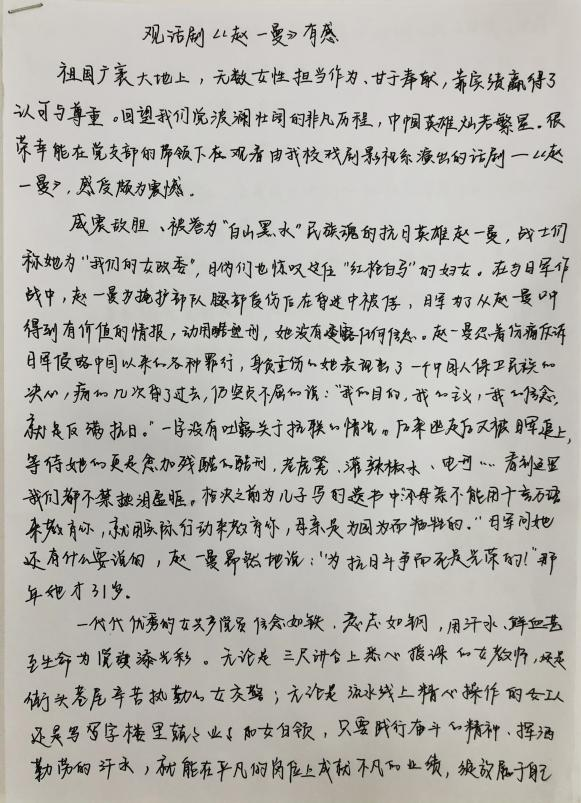 观话剧《赵一曼》有感
祖国广袤大地上，无数女性担当作为、甘于奉献，靠实绩赢得了
认可与尊重。回望我们党波澜壮阔的非凡历程，巾帼英雄灿若繁星。很
荣幸能在党支部的带领下在观看由我校戏剧影视系演出的话剧—《赵
一曼》，感受颇为震憾。
威震敌胆、被誉为“白山黑水”民族魂的抗日英雄赵一曼，战士们
称她为“我们的女政委”，日伪们也惊叹这位“红枪白马”的妇女。在与日军作
战中，赵一曼为掩护部队腿部负伤后在昏迷中被俘，日军为了从赵一曼口中
得到有价值的情报，动用酷刑，她没有透露任何信息。赵一曼忍着伤痛怒诉
日军侵略中国以来的各种罪行，身负重伤的她表现出了一个中国人保卫民族的
决心，痛的几次昏了过去，仍坚贞不屈的说：“我的目的，我的主义，我的信念，
就是反满抗日。”一字没有吐露关于抗联的情况。后来逃走后又被日军追上，
等待她的更是愈加残酷的酷刑，老虎凳、灌辣椒水、电刑……看到这里
我们都不禁热泪盈眶。枪决之前为儿子写的遗书中“母亲不能用千言万语
来教育你，就用实际行动来教育你，母亲是为国为而牺牲的。”日军问她
还有什么要说的，赵一曼昂然地说：“为抗日斗争而死是光荣的！”那
年她才31岁。
一代代优秀的女共产党员信念如铁、意志如钢，用汗水、鲜血甚
至生命为党旗添光彩。无论是三尺讲台上悉心授课的女教师，还是
街头巷尾辛苦执勤的女交警；无论是流水线上精心操作的女工
还是写字楼里兢兢业业的女白领，只要践行奋斗的精神、挥洒
勤劳的汗水，就能在平凡的岗位上成就不凡的业绩，绽放属于自己